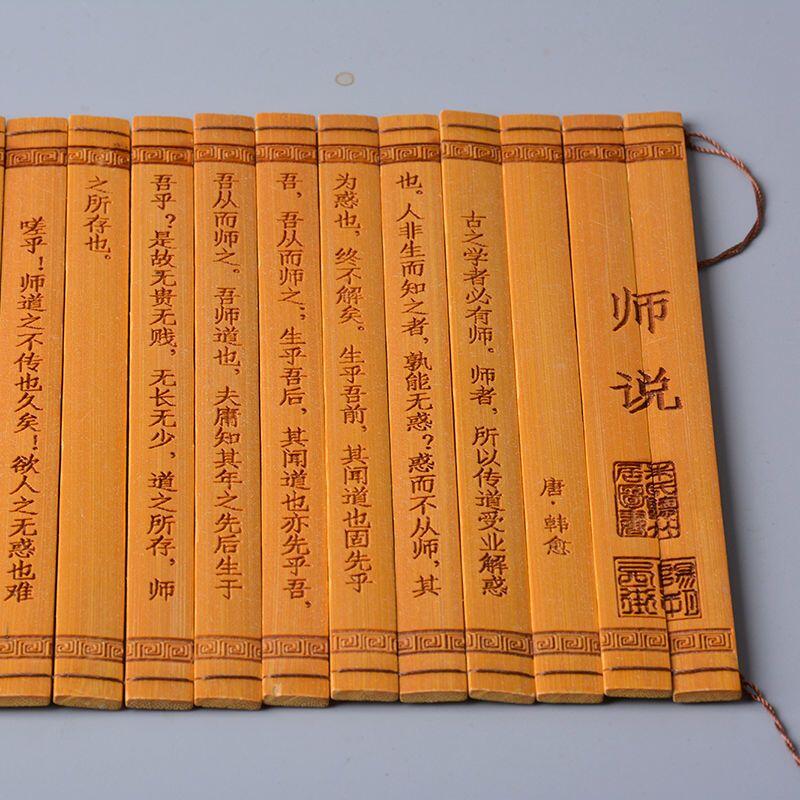 师说
唐·韩愈
古之学者必有师。师者，所以传道受业解惑
也。人非生而知之者，孰能无惑？惑而不从师，其
为惑也，终不解矣。生乎吾前，其闻道也固先乎
吾，吾从而师之；生乎吾后，其闻道也亦先乎吾，
吾从而师之。吾师道也，夫庸知其年之先后生于
吾乎？是故无贵无贱，无长无少，道之所存，师
之所存也。
嗟乎！师道之不传也久矣！欲人之无惑也难